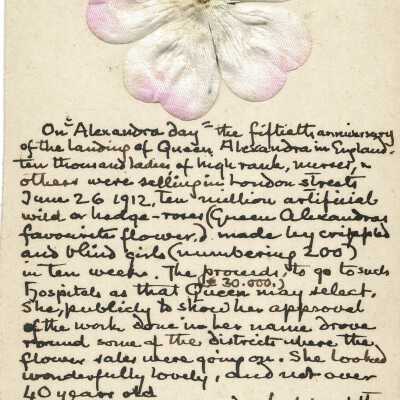 On "Alexandra day" the fiftieth anniversary
of the landing of Queen Alexandra in England.
ten thousand ladies of high rank, nurses, &
others were selling in London streets
June 26 1912, ten million artificial
wild or hedge-roses (Queen Alexandras
favourite flower,) made by crippled
and blind girls (numbering 200)
in ten weeks. The proceeds, to go to such
(£ 30.000.)
Hospitals as that Queen may select.
She, publicly to show her approval
of the work done in her name drove
round some of the districts where the
flower sales were going on. She looked
wonderfully lovely, and not over
40 years old